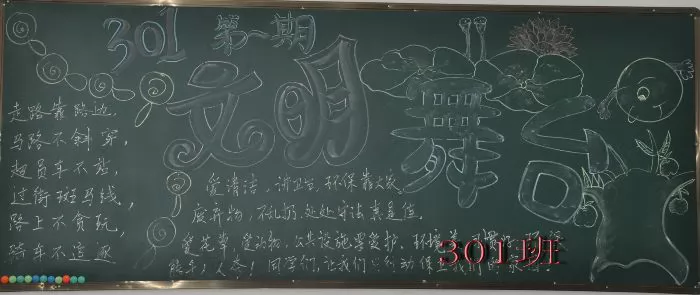 301 第一期
文明舞台
走路靠路边,
马路不斜穿,
超员车不站,
过街斑马线,
路上不贪玩,
骑车不追逐
爱清洁,讲卫生,环保靠大家。
废弃物,不乱扔,处处守法真是值。
爱花草,爱动物,公共设施要爱护、环境美
同学们,让我们
301班